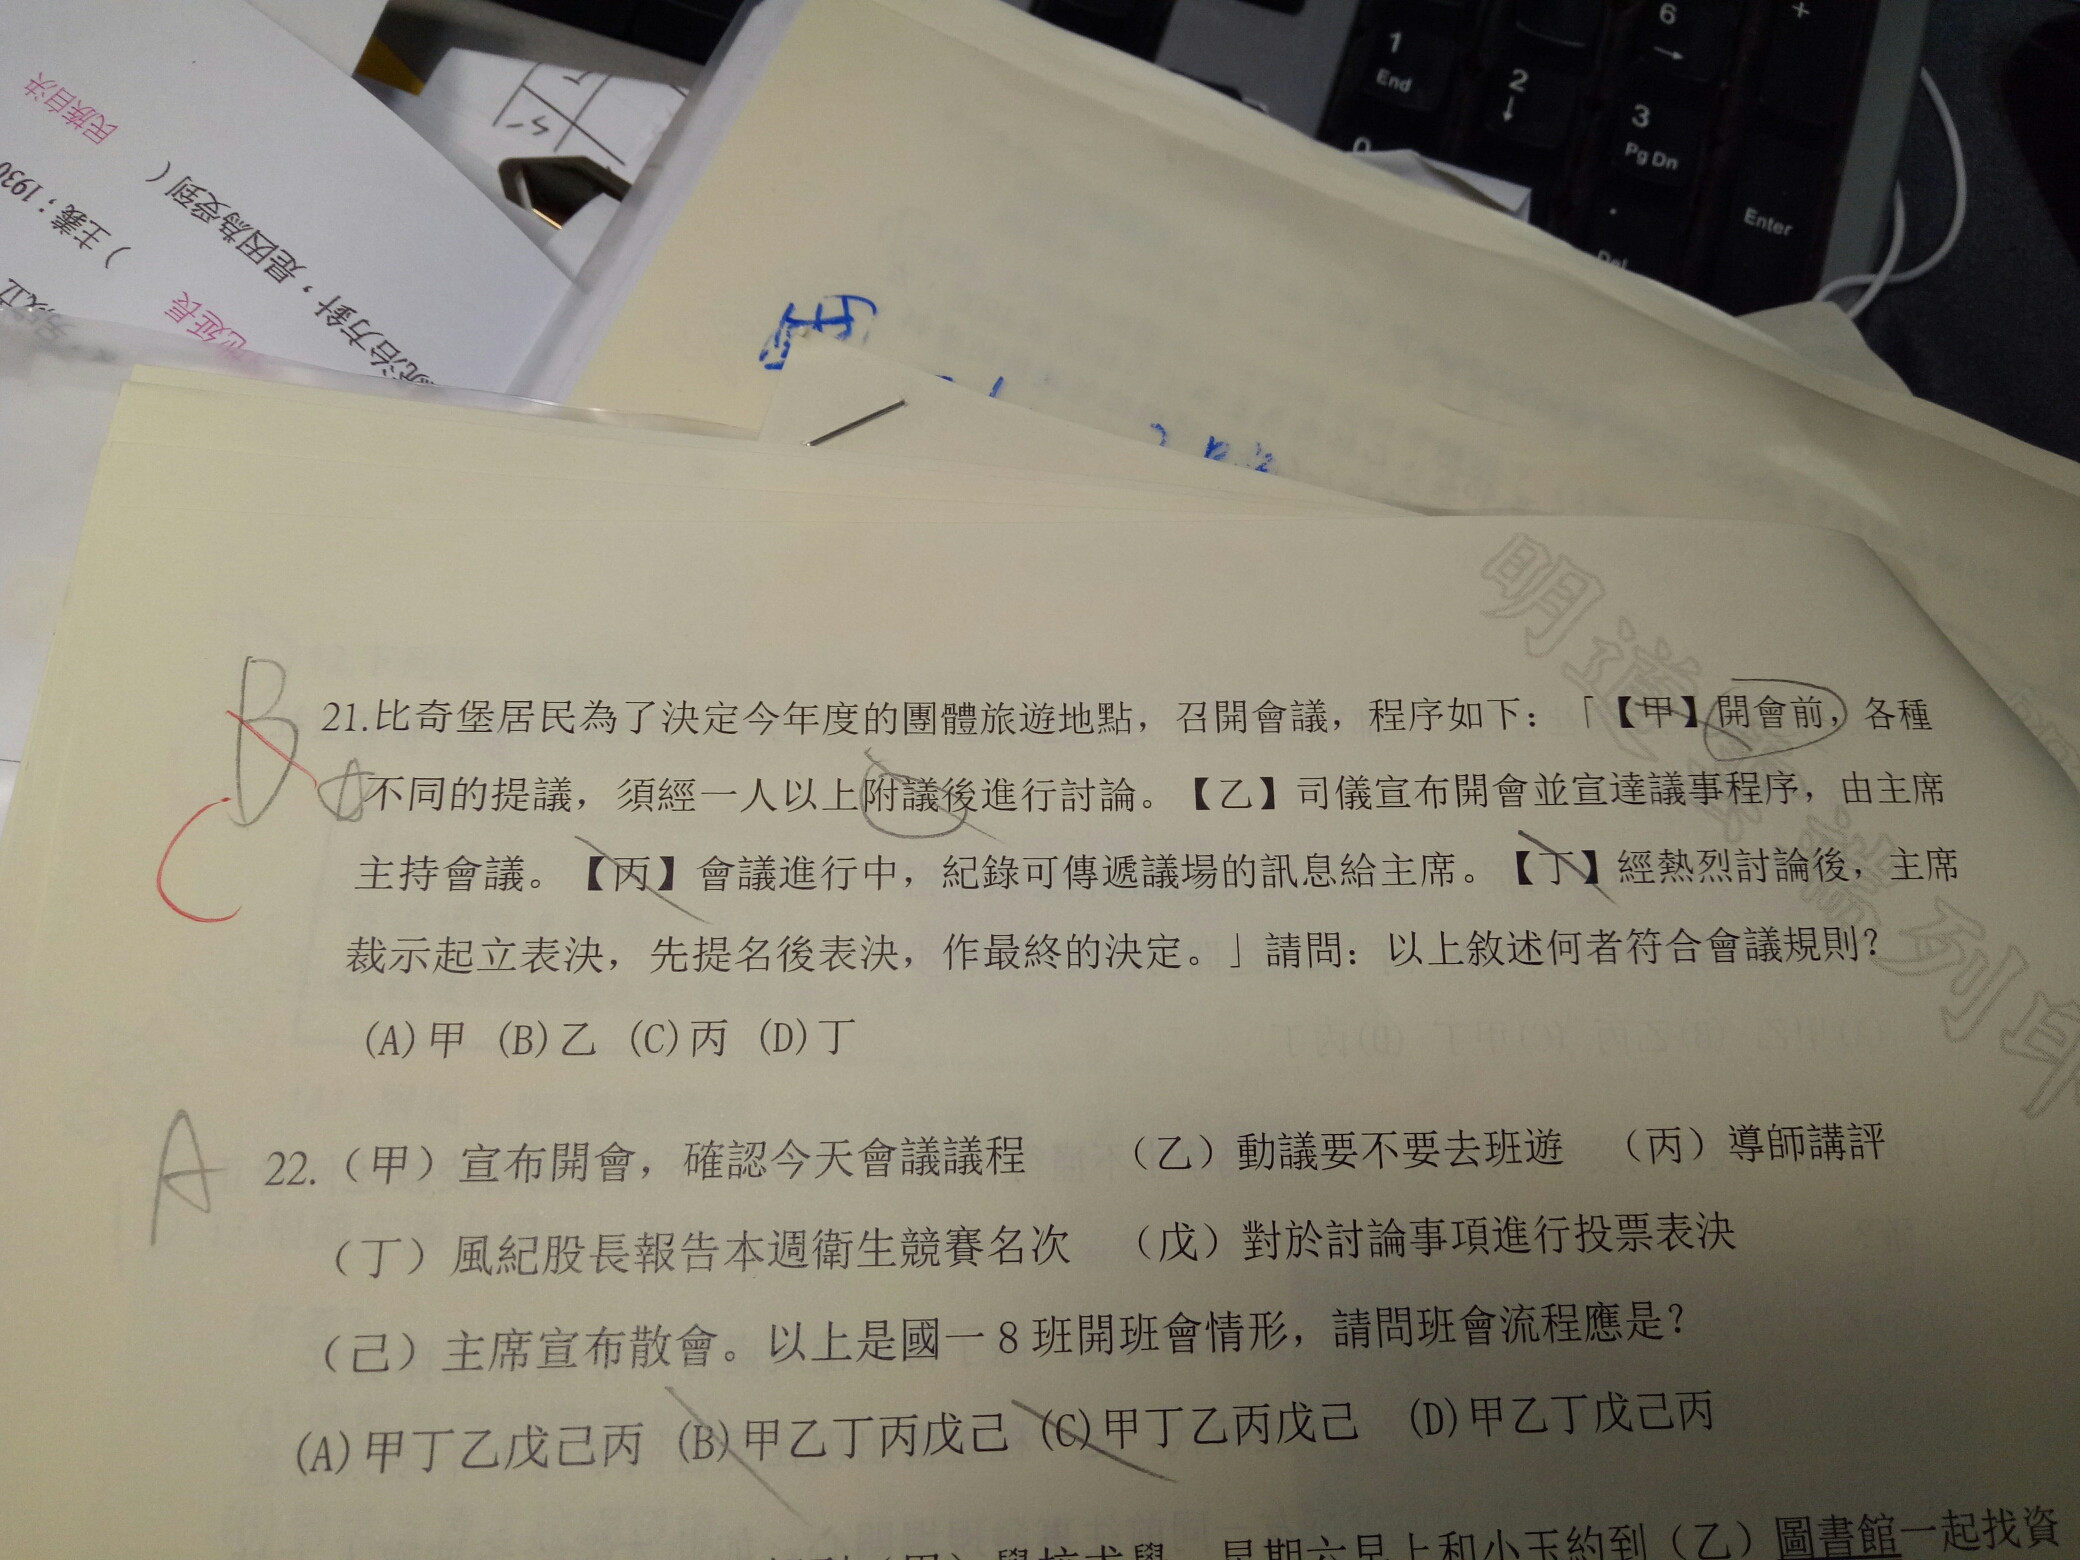 6
→
+
1
End
2
↓
3
Pg Dn
0
.
Del
Enter
民族自決
主義；1930
）
是因為受到（
統治方針，
延長
明道
列印
B
C
21.比奇堡居民為了決定今年度的團體旅遊地點，召開會議，程序如下：「【甲】開會前，各種
不同的提議，須經一人以上附議後進行討論。【乙】司儀宣布開會並宣達議事程序，由主席
主持會議。【丙】會議進行中，紀錄可傳遞議場的訊息給主席。【丁】經熱烈討論後，主席
裁示起立表決，先提名後表決，作最終的決定。」請問：以上敘述何者符合會議規則？
(A)甲 (B)乙 (C)丙 (D)丁
A
22.（甲）宣布開會，確認今天會議議程 （乙）動議要不要去班遊 （丙）導師講評
（丁）風紀股長報告本週衛生競賽名次 （戊）對於討論事項進行投票表決
（己）主席宣布散會。以上是國一 8 班開班會情形，請問班會流程應是？
(A)甲丁乙戊己丙 (B)甲乙丁丙戊己 (C)甲丁乙丙戊己 (D)甲乙丁戊己丙
星期六早上和小玉約到（乙）圖書館一起找資